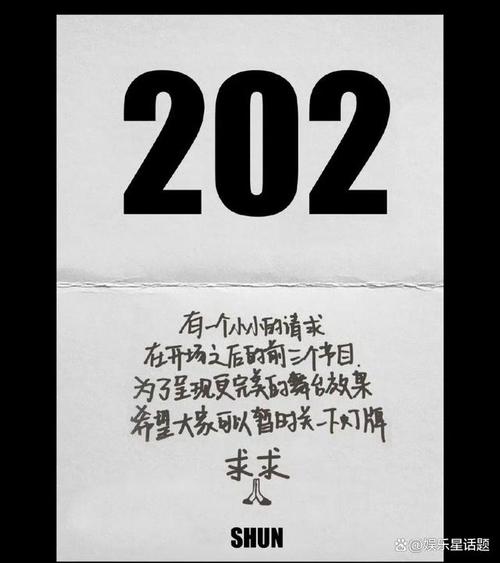 202
有一个小小的请求
在开场之后的前三个节目
为了呈现更完美的舞台效果
希望大家可以暂时关一下灯牌
求求
SHUN
@娱乐星话题